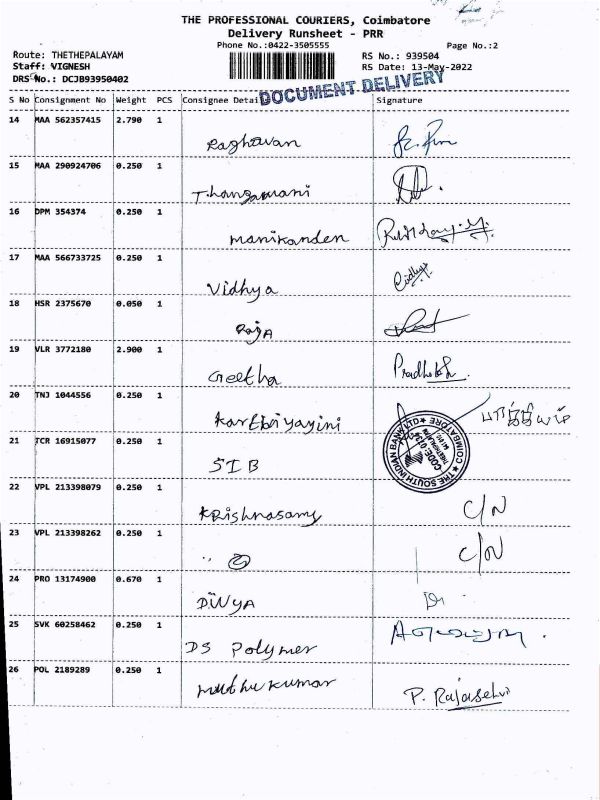 THE PROFESSIONAL COURIERS, Coimbatore
Delivery Runsheet - PRR
Phone No.:0422-3505555
Page No.:2
Route: THETHEPALAYAM
RS No.: 939504
Staff: VIGNESH
RS Date: 13-May-2022
DRS No.: DCJB93950402
DOCUMENT DELIVERY
S No Consignment No Weight PCS Consignee Detai Signature
14 MAA 562357415 2.790 1
Raghavan
15 MAA 290924706 0.250 1
Thangamani
16 DPM 354374 0.250 1
manikanden
17 MAA 566733725 0.250 1
Vidhya Vidhya
18 HSR 2375670 0.050 1
Raja
19 VLR 3772180 2.900 1
Geetha
20 TNJ 1044556 0.250 1
21 TCR 16915077 0.250 1
SIB
THE SOUTH INDIAN BANK LTD COIMBATORE
22 VPL 213398079 0.250 1
Krishnasamy C/N
23 VPL 213398262 0.250 1
C/N
24 PRO 13174900 0.670 1
DIVYA
25 SVK 60258462 0.250 1
DS Polymer
26 POL 2189289 0.250 1
muthukumar P. Rajaselvi